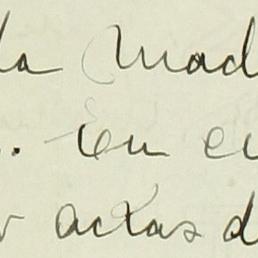 la Mad
. En e
actas d